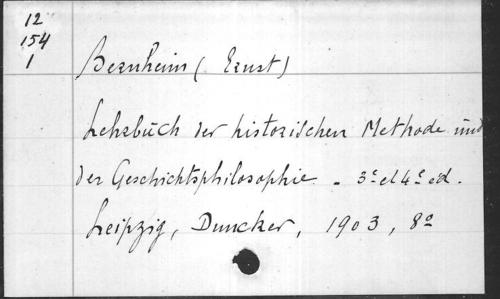 12
154
1
Bernheim (Ernst)
Lehrbuch der historischen Methode und
der Geschichtsphilosophie. - 3e et 4e éd.
Leipzig, Duncker, 1903, 8o